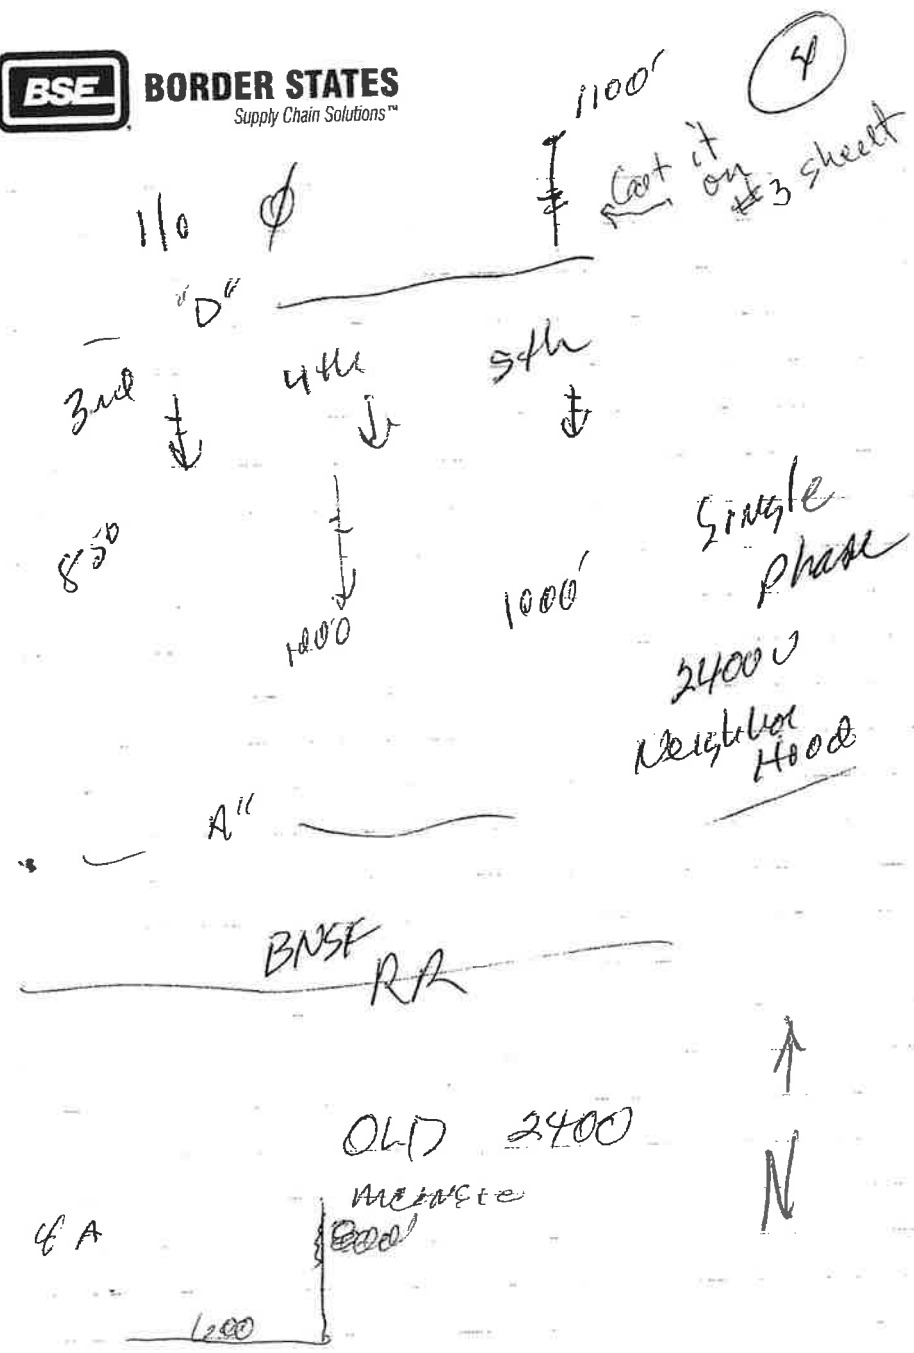 4
BSE BORDER STATES
Supply Chain Solutions™
1100'
Got it
on
#3 sheet
1/0 Ø
"D"
3rd 4th 5th
850
1200
1000'
Single
Phase
2400 V
Neighbor
Hood
A"
BNSF
RR
OLD 2400
N
4 A
1200